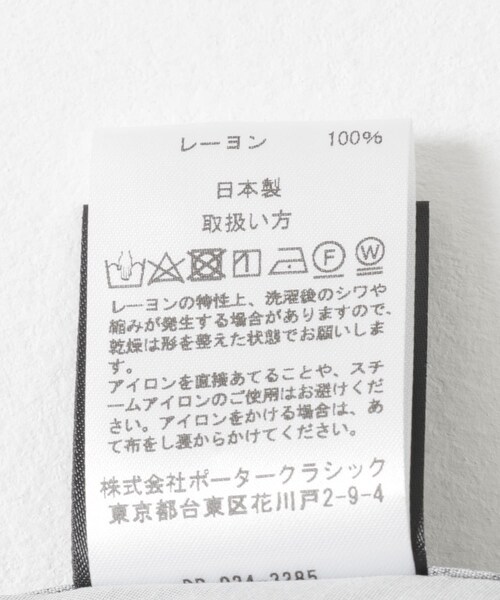 レーヨン 100%
日本製
取扱い方
F W
レーヨンの特性上、洗濯後のシワや
縮みが発生する場合がありますので、
乾燥は形を整えた状態でお願いしま
す。
アイロンを直接あてることや、スチ
ームアイロンのご使用はお避けくだ
さい。アイロンをかける場合は、あ
て布をし裏からかけてください。
株式会社ポータークラシック
東京都台東区花川戸2-9-4